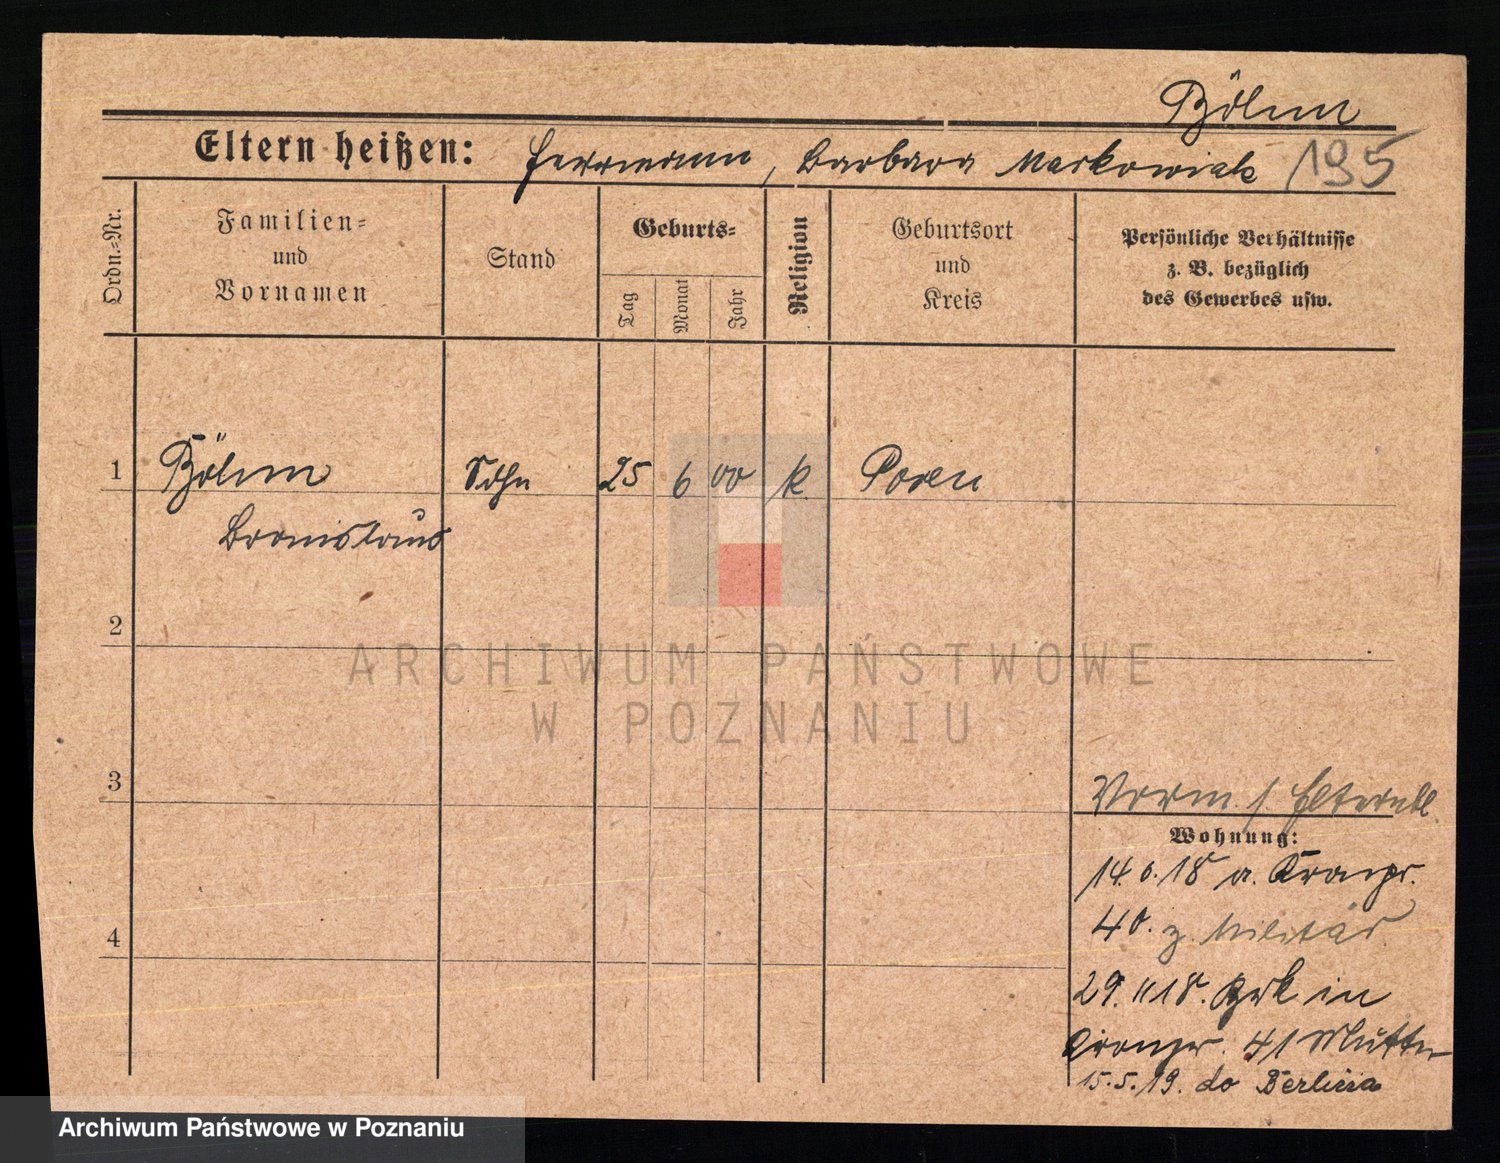 Böhm
Eltern heißen: Herrmann, Barbara Markowiak 195
Ordn.=Nr.
Familien=
und
Vornamen
Stand
Geburts=
Tag
Monat
Jahr
Religion
Geburtsort
und
Kreis
Persönliche Verhältnisse
z. B. bezüglich
des Gewerbes usw.
1 Böhm Sohn 25 6 00 k Posen
Bronislaus
2
3
Vorm. / Elternbl.
Wohnung:
14.6.18 a. Kronpr.
40. z. Militär
29.11.18. zrk in
Kronpr. 41 Mutter
15.5.19. do Berlina
4
ARCHIWUM PAŃSTWOWE
W POZNANIU
Archiwum Państwowe w Poznaniu